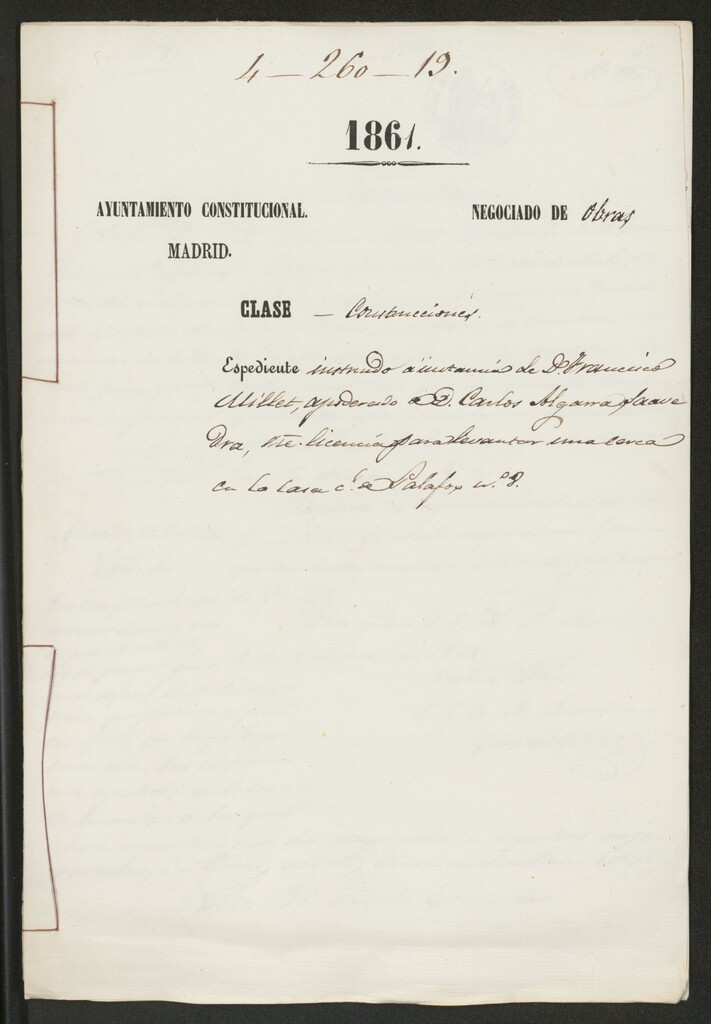 4 — 260 — 19.
1861.
AYUNTAMIENTO CONSTITUCIONAL. NEGOCIADO DE Obras
MADRID.
CLASE — Construcciones.
Espediente instruido á instancia de D. Francisco
Millet, apoderado de D. Carlos Algarra Saave
dra, licencia para levantar una cerca
en la casa c.e de Palafox n.º 8.